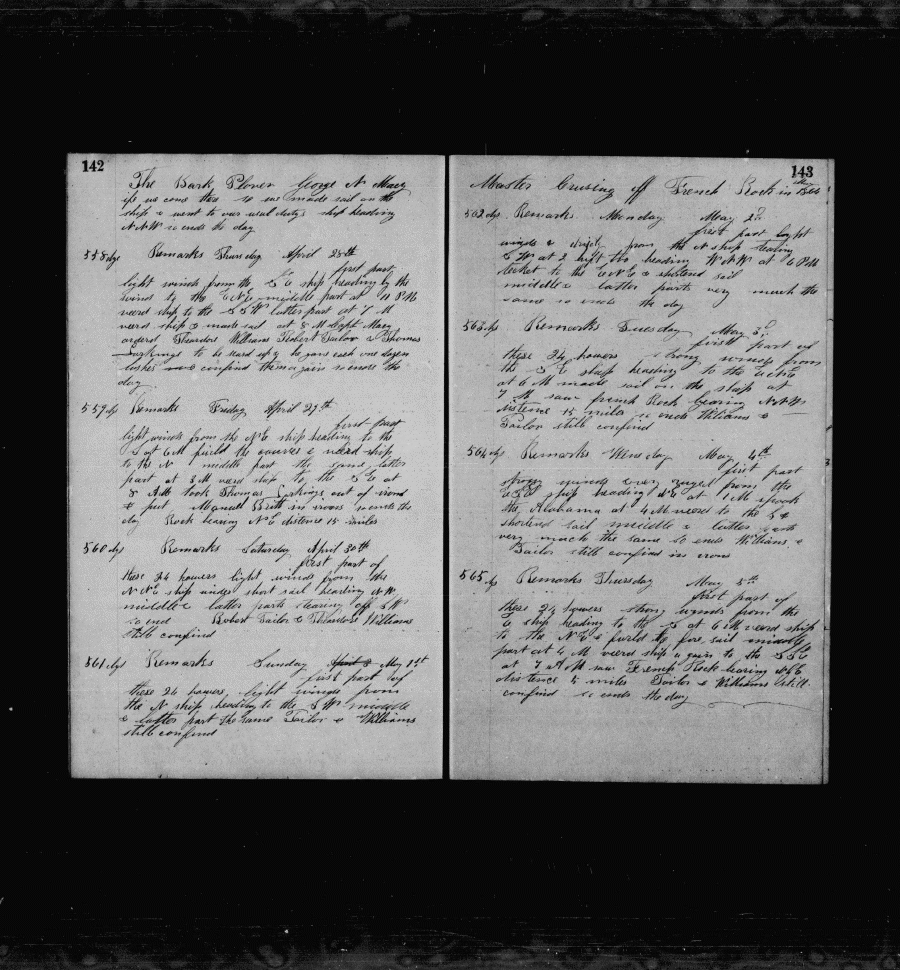 142
The Bark Plover George N Macy
we come there so we made sail on the
ship & went to our usul dutys ship heading
N N W so ends the day
558 dys Remarks Thursday April 28th
first part
light winds from the S E ship heading by the
wind to the E N E middle part at 12 PM
veerd ship to the S S W latter part at 7 M
veerd ship & made sail at 8 M Capt Macy
orderd Theardore William Robert Tailor & Thomas
to be up & he gave each one dozen
lashes and confind them again so ends the
day
559 dys Remarks Friday April 29th
first part
light winds from the N E ship heading to the
S at 6 M furld the courses & veerd ship
to the N middle part the same latter
part at 3 M veerd ship to the S E at
8 AM took Thomas out of irons
& put Manuell Britt in irons so ends the
day Rock bearing N E distence 15 miles
560 dys Remarks Saturday April 30th
first part of
these 24 howers light winds from the
N N E ship under short sail heading N W
middle & latter parts stearing off S W
so end Robert Tailor & Theardore Williams
still confind
561 dys Remarks Sunday April 3 May 1st
first part of
these 24 howers light winds from
the N ship heading to the S W middle
& latter part the same Tailor & Williams
still confind
143
Master Cruising off French Rock in May
562 dys Remarks Monday May 2d
first part light
winds & from the N ship heading
E W at 2 heading W N W at 6 PM
tacket to the E N E & shortend sail
middle & latter parts very much the
same so ends the day
563 dys Remarks Tuesday May 3d
first part of
these 24 howers strong winds from
the S E ship heading to the E N E
at 6 M made sail on the ship at
7 M saw french Rock bearing N N W
distence 15 miles so ends Williams &
Tailor still confind
564 dys Remarks Wensday May 4th
first part
strong winds every from the
E S E ship heading N E at 1 M spook
the Alabama at 4 M veerd to the S &
shortend sail middle & latter parts
very much the same so ends Williams &
Tailor still confind in irons
565 dys Remarks Thursday May 5th
first part of
these 24 howers strong winds from the
E ship heading to the S at 6 M veerd ship
to the N E & furld the fore sail middle
part at 4 M veerd ship again to the S S E
at 7 AM saw French Rock bearing N E
distence 15 miles Tailor & Williams still
confind so ends the day